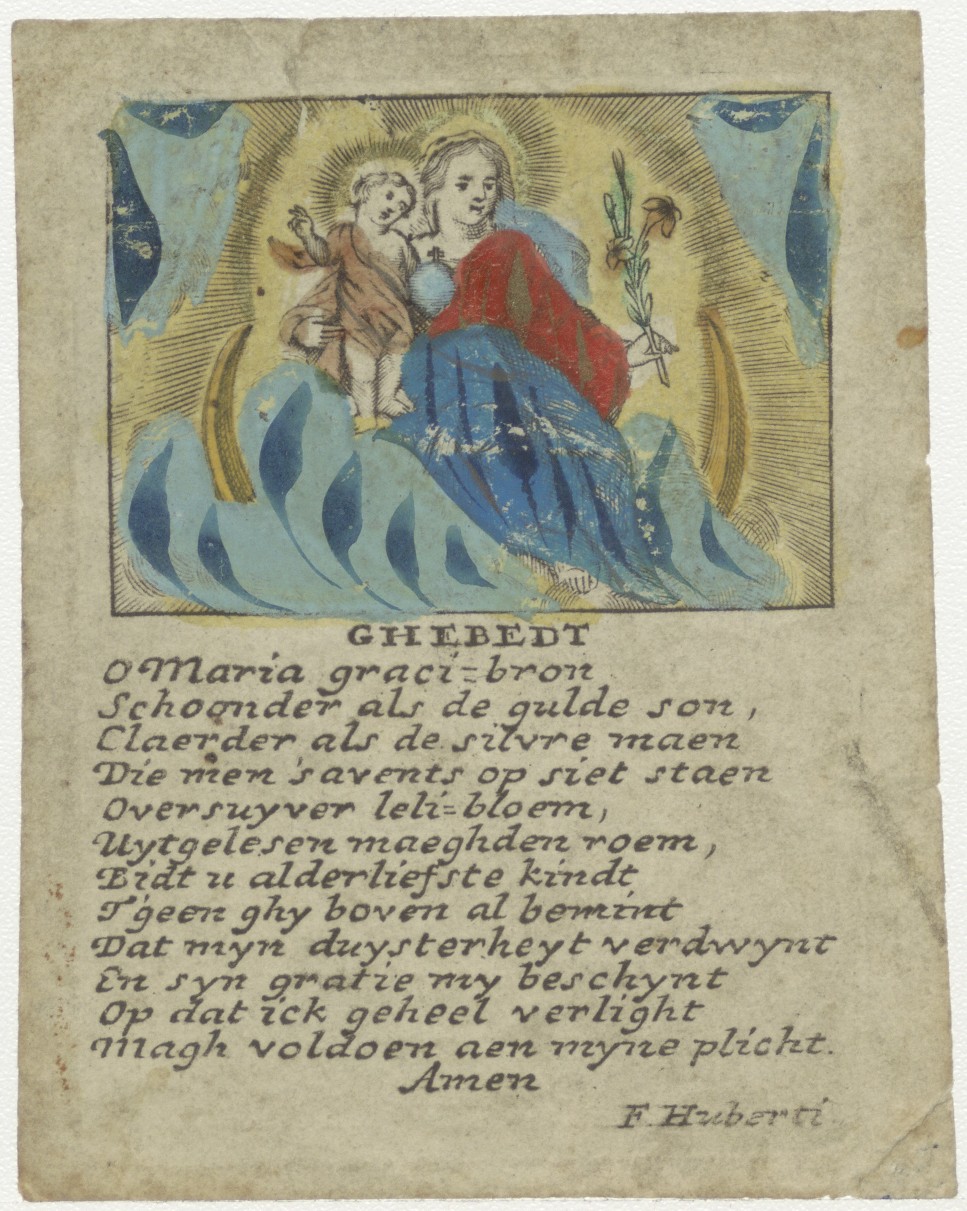 GHEBEDT
O Maria graci=bron
Schoonder als de gulde son,
Claerder als de silvre maen
Die men 'savents op siet staen
Oversuyver leli=bloem,
Uytgelesen maeghden roem,
Bidt u alderliefste kindt
T'geen ghy boven al bemint
Dat myn duysterheyt verdwynt
En syn gratie my beschynt
Op dat ick geheel verlight
Magh voldoen aen myne plicht.
Amen
F. Huberti